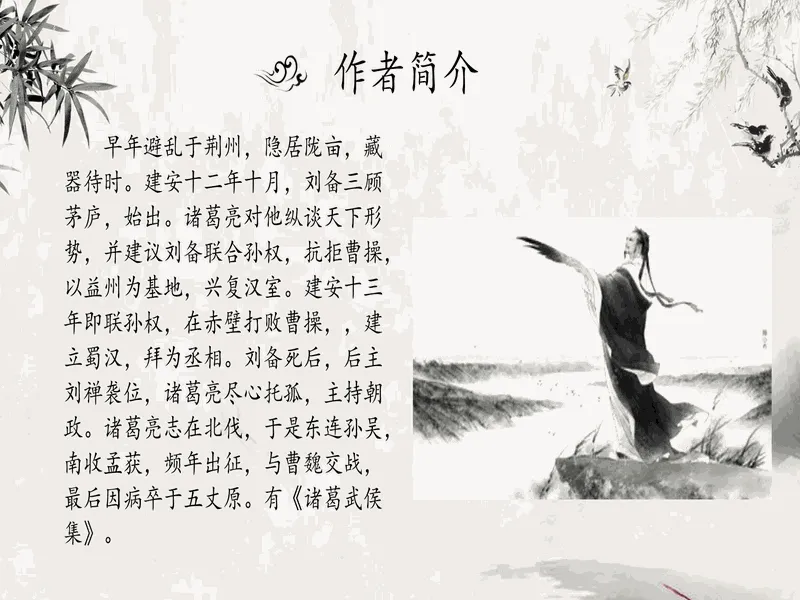 作者简介
早年避乱于荆州，隐居陇亩，藏
器待时。建安十二年十月，刘备三顾
茅庐，始出。诸葛亮对他纵谈天下形
势，并建议刘备联合孙权，抗拒曹操，
以益州为基地，兴复汉室。建安十三
年即联孙权，在赤壁打败曹操，，建
立蜀汉，拜为丞相。刘备死后，后主
刘禅袭位，诸葛亮尽心托孤，主持朝
政。诸葛亮志在北伐，于是东连孙吴，
南收孟获，频年出征，与曹魏交战，
最后因病卒于五丈原。有《诸葛武侯
集》。